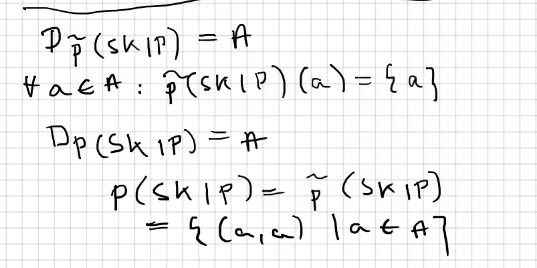 D_p̃(SKIP) = A
∀ a ∈ A : p̃(SKIP)(a) = {a}
D_p(SKIP) = A
p(SKIP) = p̃(SKIP)
= {(a,a) | a ∈ A}